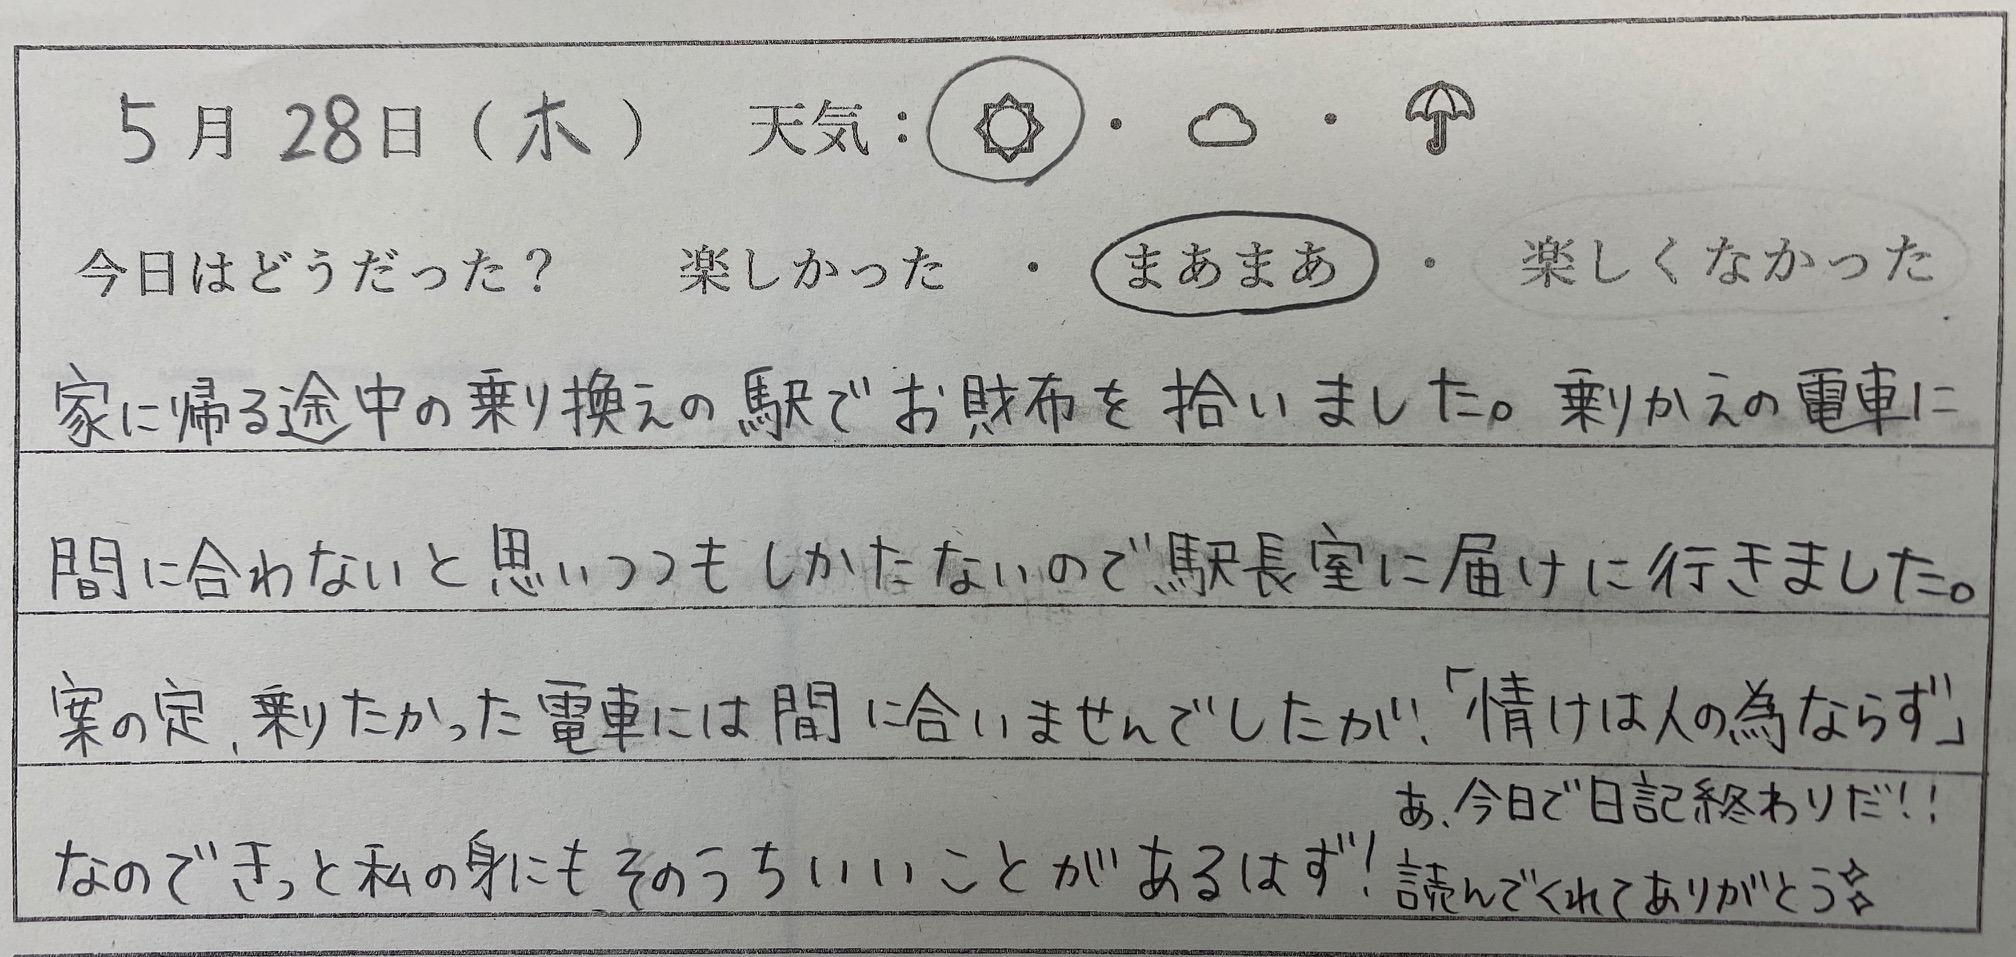 5月28日(木) 天気:☼・☁・☂
今日はどうだった? 楽しかった ・ まあまあ ・ 楽しくなかった
家に帰る途中の乗り換えの駅でお財布を拾いました。乗りかえの電車に
間に合わないと思いつつもしかたないので駅長室に届けに行きました。
案の定、乗りたかった電車には間に合いませんでしたが、「情けは人の為ならず」
なのできっと私の身にもそのうちいいことがあるはず!
あ、今日で日記終わりだ!!
読んでくれてありがとう✧